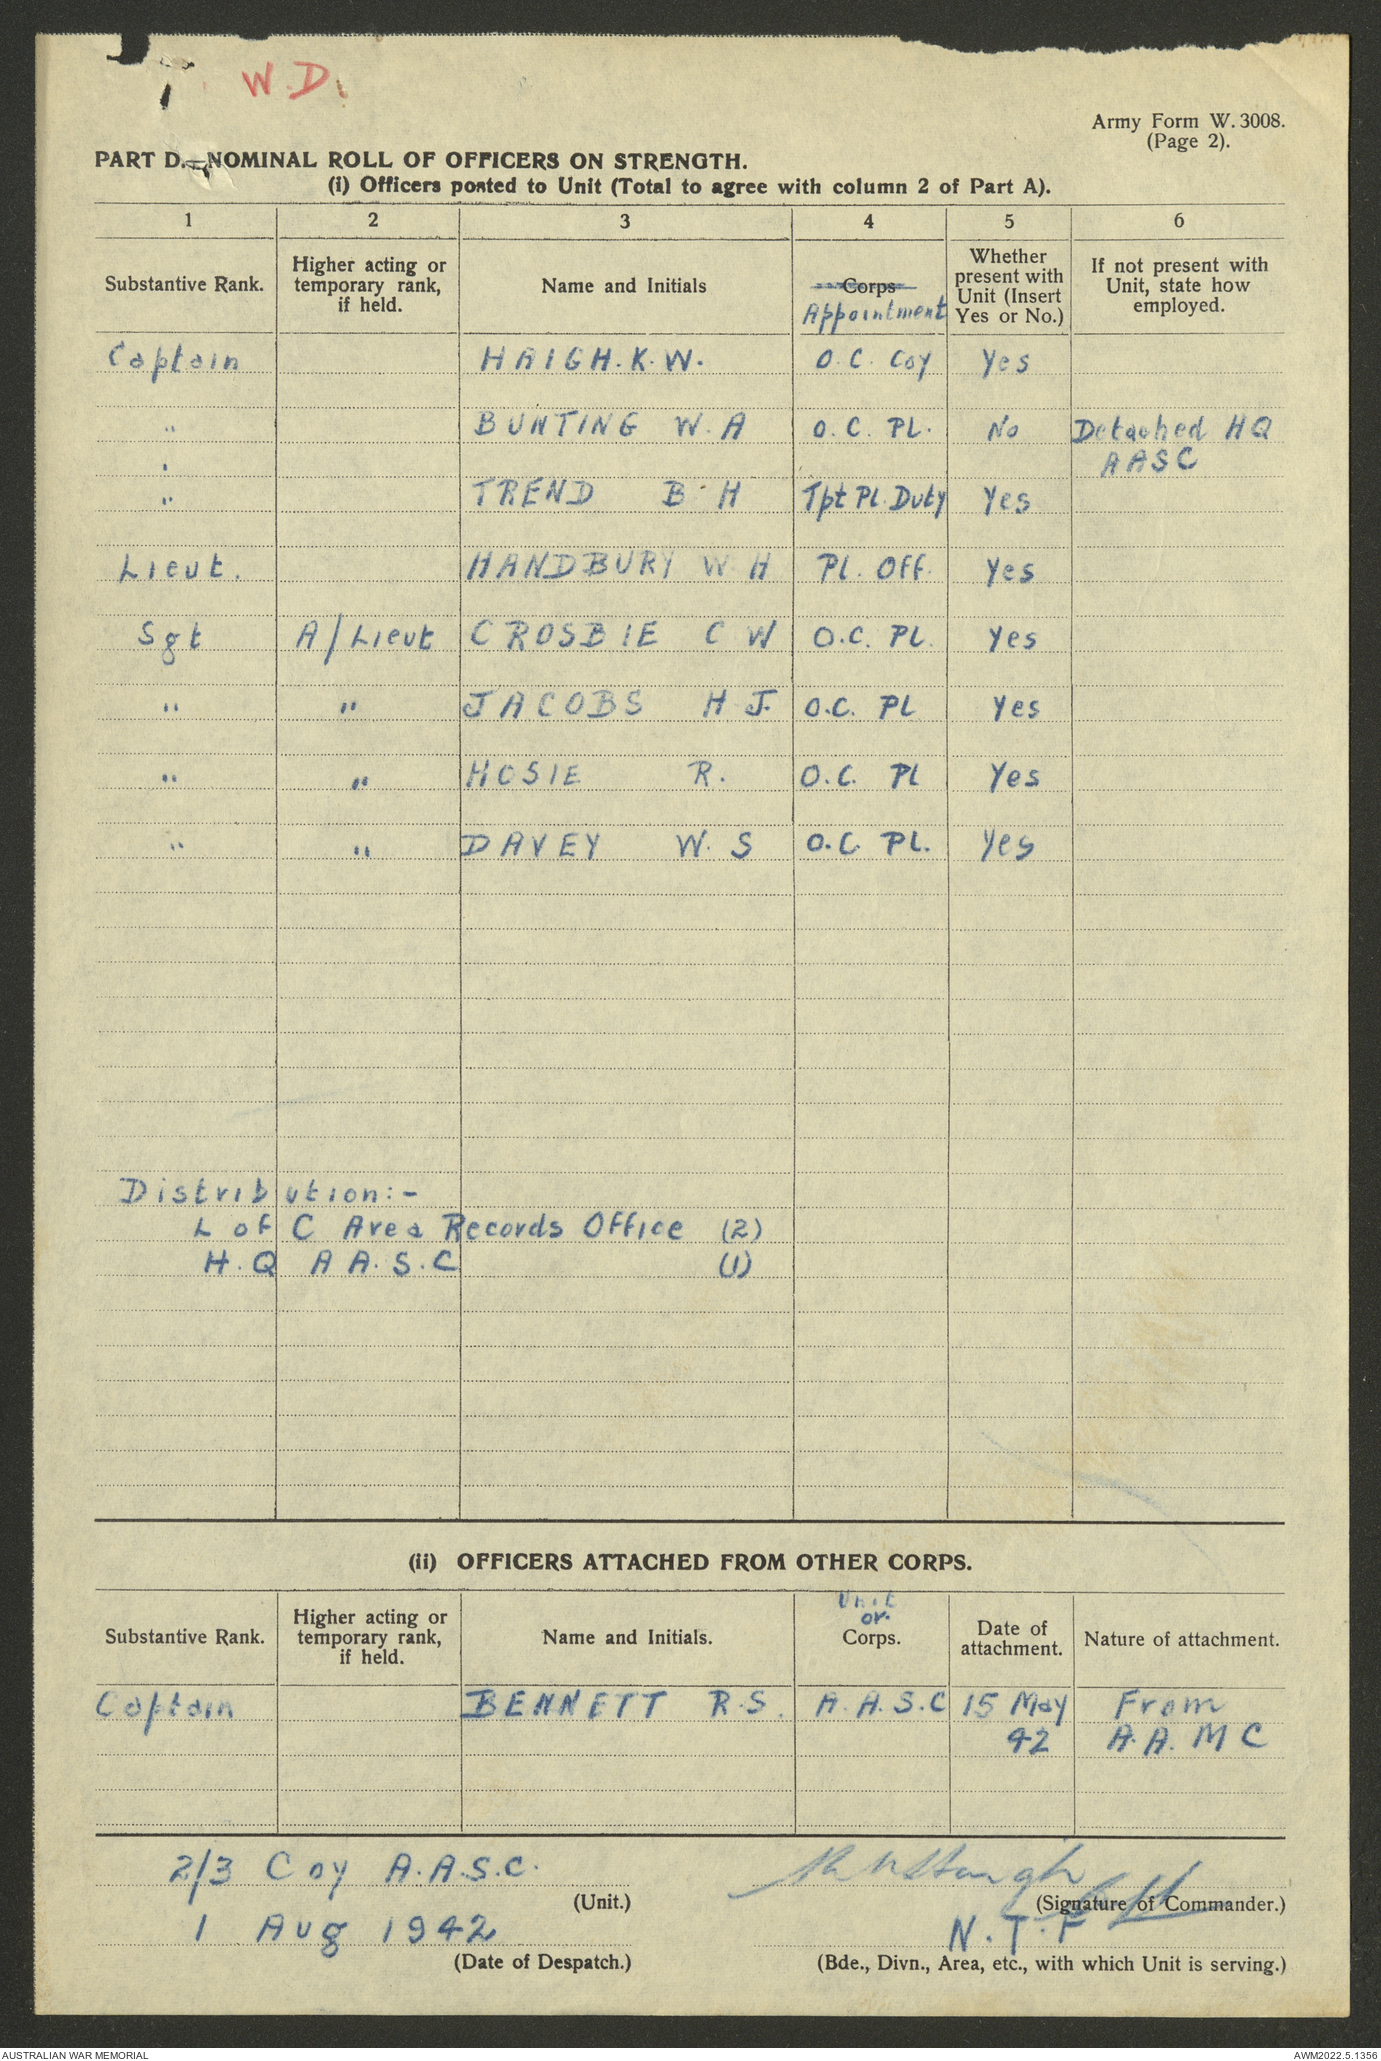 W.D.
Army Form W. 3008.
(Page 2).
PART D.—NOMINAL ROLL OF OFFICERS ON STRENGTH.
(i) Officers posted to Unit (Total to agree with column 2 of Part A).
1 2 3 4 5 6
Substantive Rank. Higher acting or temporary rank, if held. Name and Initials Corps Appointment Whether present with Unit (Insert Yes or No.) If not present with Unit, state how employed.
Captain HAIGH. K. W. O.C. Coy Yes
" BUNTING W. A O.C. PL. No Detached HQ
AASC
" TREND B. H Tpt Pl. Duty Yes
Lieut. HANDBURY W. H PL. Off. Yes
Sgt A/Lieut CROSBIE C W O.C. PL. Yes
" " JACOBS H J. O.C. PL Yes
" " HOSIE R. O.C. PL Yes
" " DAVEY W. S O.C. PL. Yes
Distribution:-
L of C Area Records Office (2)
H.Q A A.S.C (1)
(ii) OFFICERS ATTACHED FROM OTHER CORPS.
Substantive Rank. Higher acting or temporary rank, if held. Name and Initials. Unit or. Corps. Date of attachment. Nature of attachment.
Captain BENNETT R.S. A.A.S.C 15 May From
42 A.A.M C
2/3 Coy A.A.S.C.
(Unit.) (Signature of Commander.)
1 Aug 1942 N.T.F
(Date of Despatch.) (Bde., Divn., Area, etc., with which Unit is serving.)
AUSTRALIAN WAR MEMORIAL AWM2022.5.1356